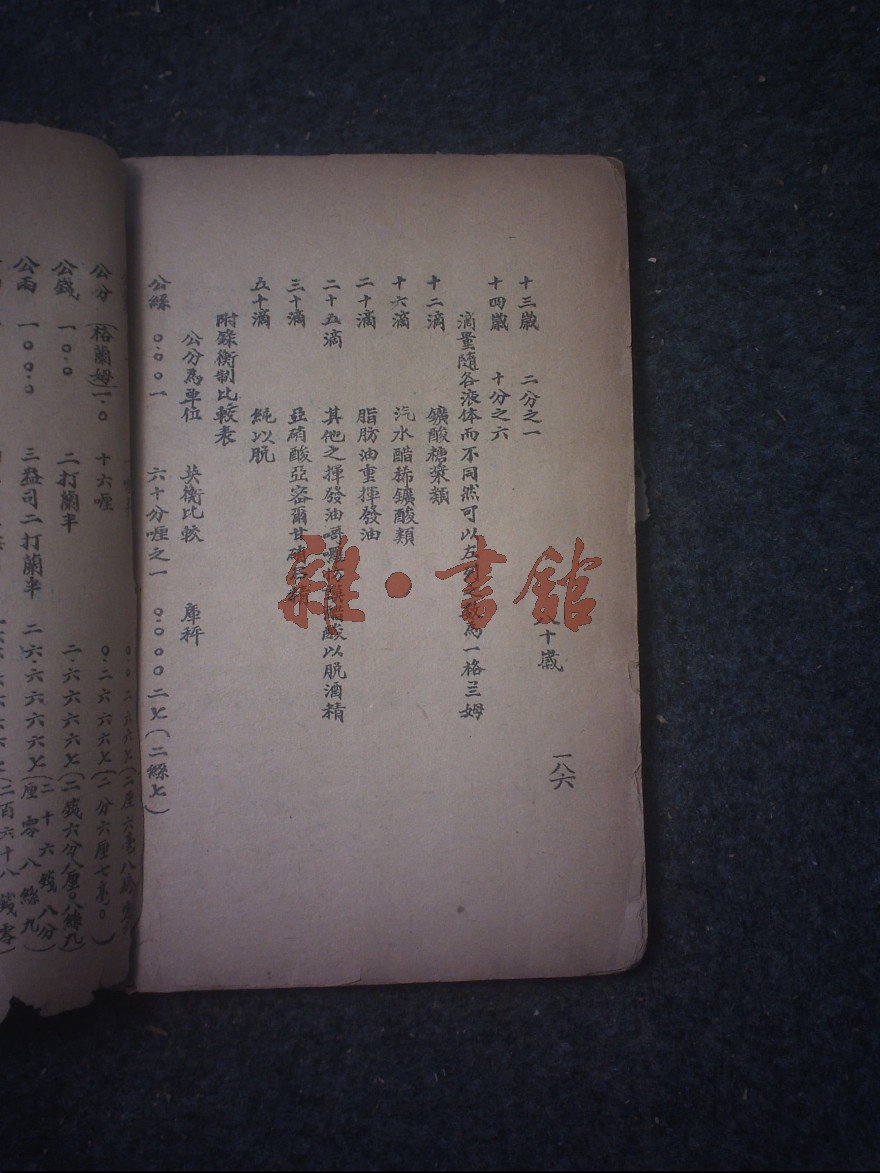 一八六
八十歲
十三歲 二分之一
十四歲 十分之六
滴量隨各液体而不同然可以左列之 爲一格兰姆
十二滴 鑛酸糖漿類
十六滴 汽水醋稀鑛酸類
二十滴 脂肪油重揮發油
二十五滴 其他之揮發油 醋酸以脱酒精
三十滴 亞硝酸亞密爾甘硝
五十滴 純以脱
附錄衡制比較表
公分爲單位 英衡比較 庫秤
公絲 〇.〇〇一 六十分喱之一 〇.〇〇〇〇二七(二絲七)
公分(格蘭姆)一.〇 十六喱 〇.二六六六七(二分六厘七毫〇)
公錢 一〇.〇 二打蘭半 二.六六六六七(二錢六分八厘〇八絲九)
公兩 一〇〇.〇 三益司二打蘭半 二六.六六六六七(二十六錢八分厘零八絲九)
雜·書館